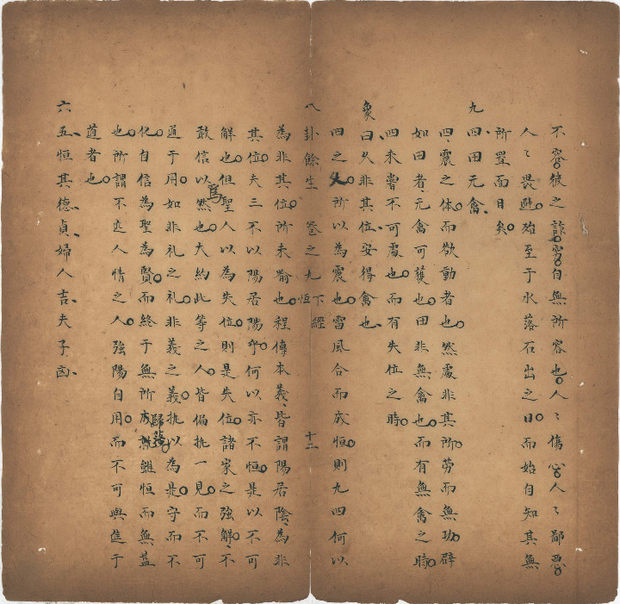 不容彼之容自無所容也人々傷心人々鄙惡
人々畏避殆至于水落石出之日而始自知其無
所置面目矣
九四田无禽
四震之体而欲動者也然處非其所勞而無功辟
如田者无禽可獲也田非無禽也而有無禽之時
四未嘗不可處也而有失位之時
象曰久非其位安得禽也
四之久所以為震也雷風合而成恒則九四何以
八卦餘生 卷之九 下經 恒 十二
為非其位所未喻也程傳本義皆謂陽居陰為非
其位夫三不以陽居陽乎何以亦不恒是以不可
解也但聖人以為失位則是失位諸家之強解不
敢信以為然也大約此等之人皆偏執一見而不可
通于用如非礼之礼非義之義執以為是守而不
化自信為聖為賢而終于無所成就雖恒而無益
也所謂不近人情之人強陽自用而不可與進于
道者也
六五恒其德貞婦人吉夫子凶